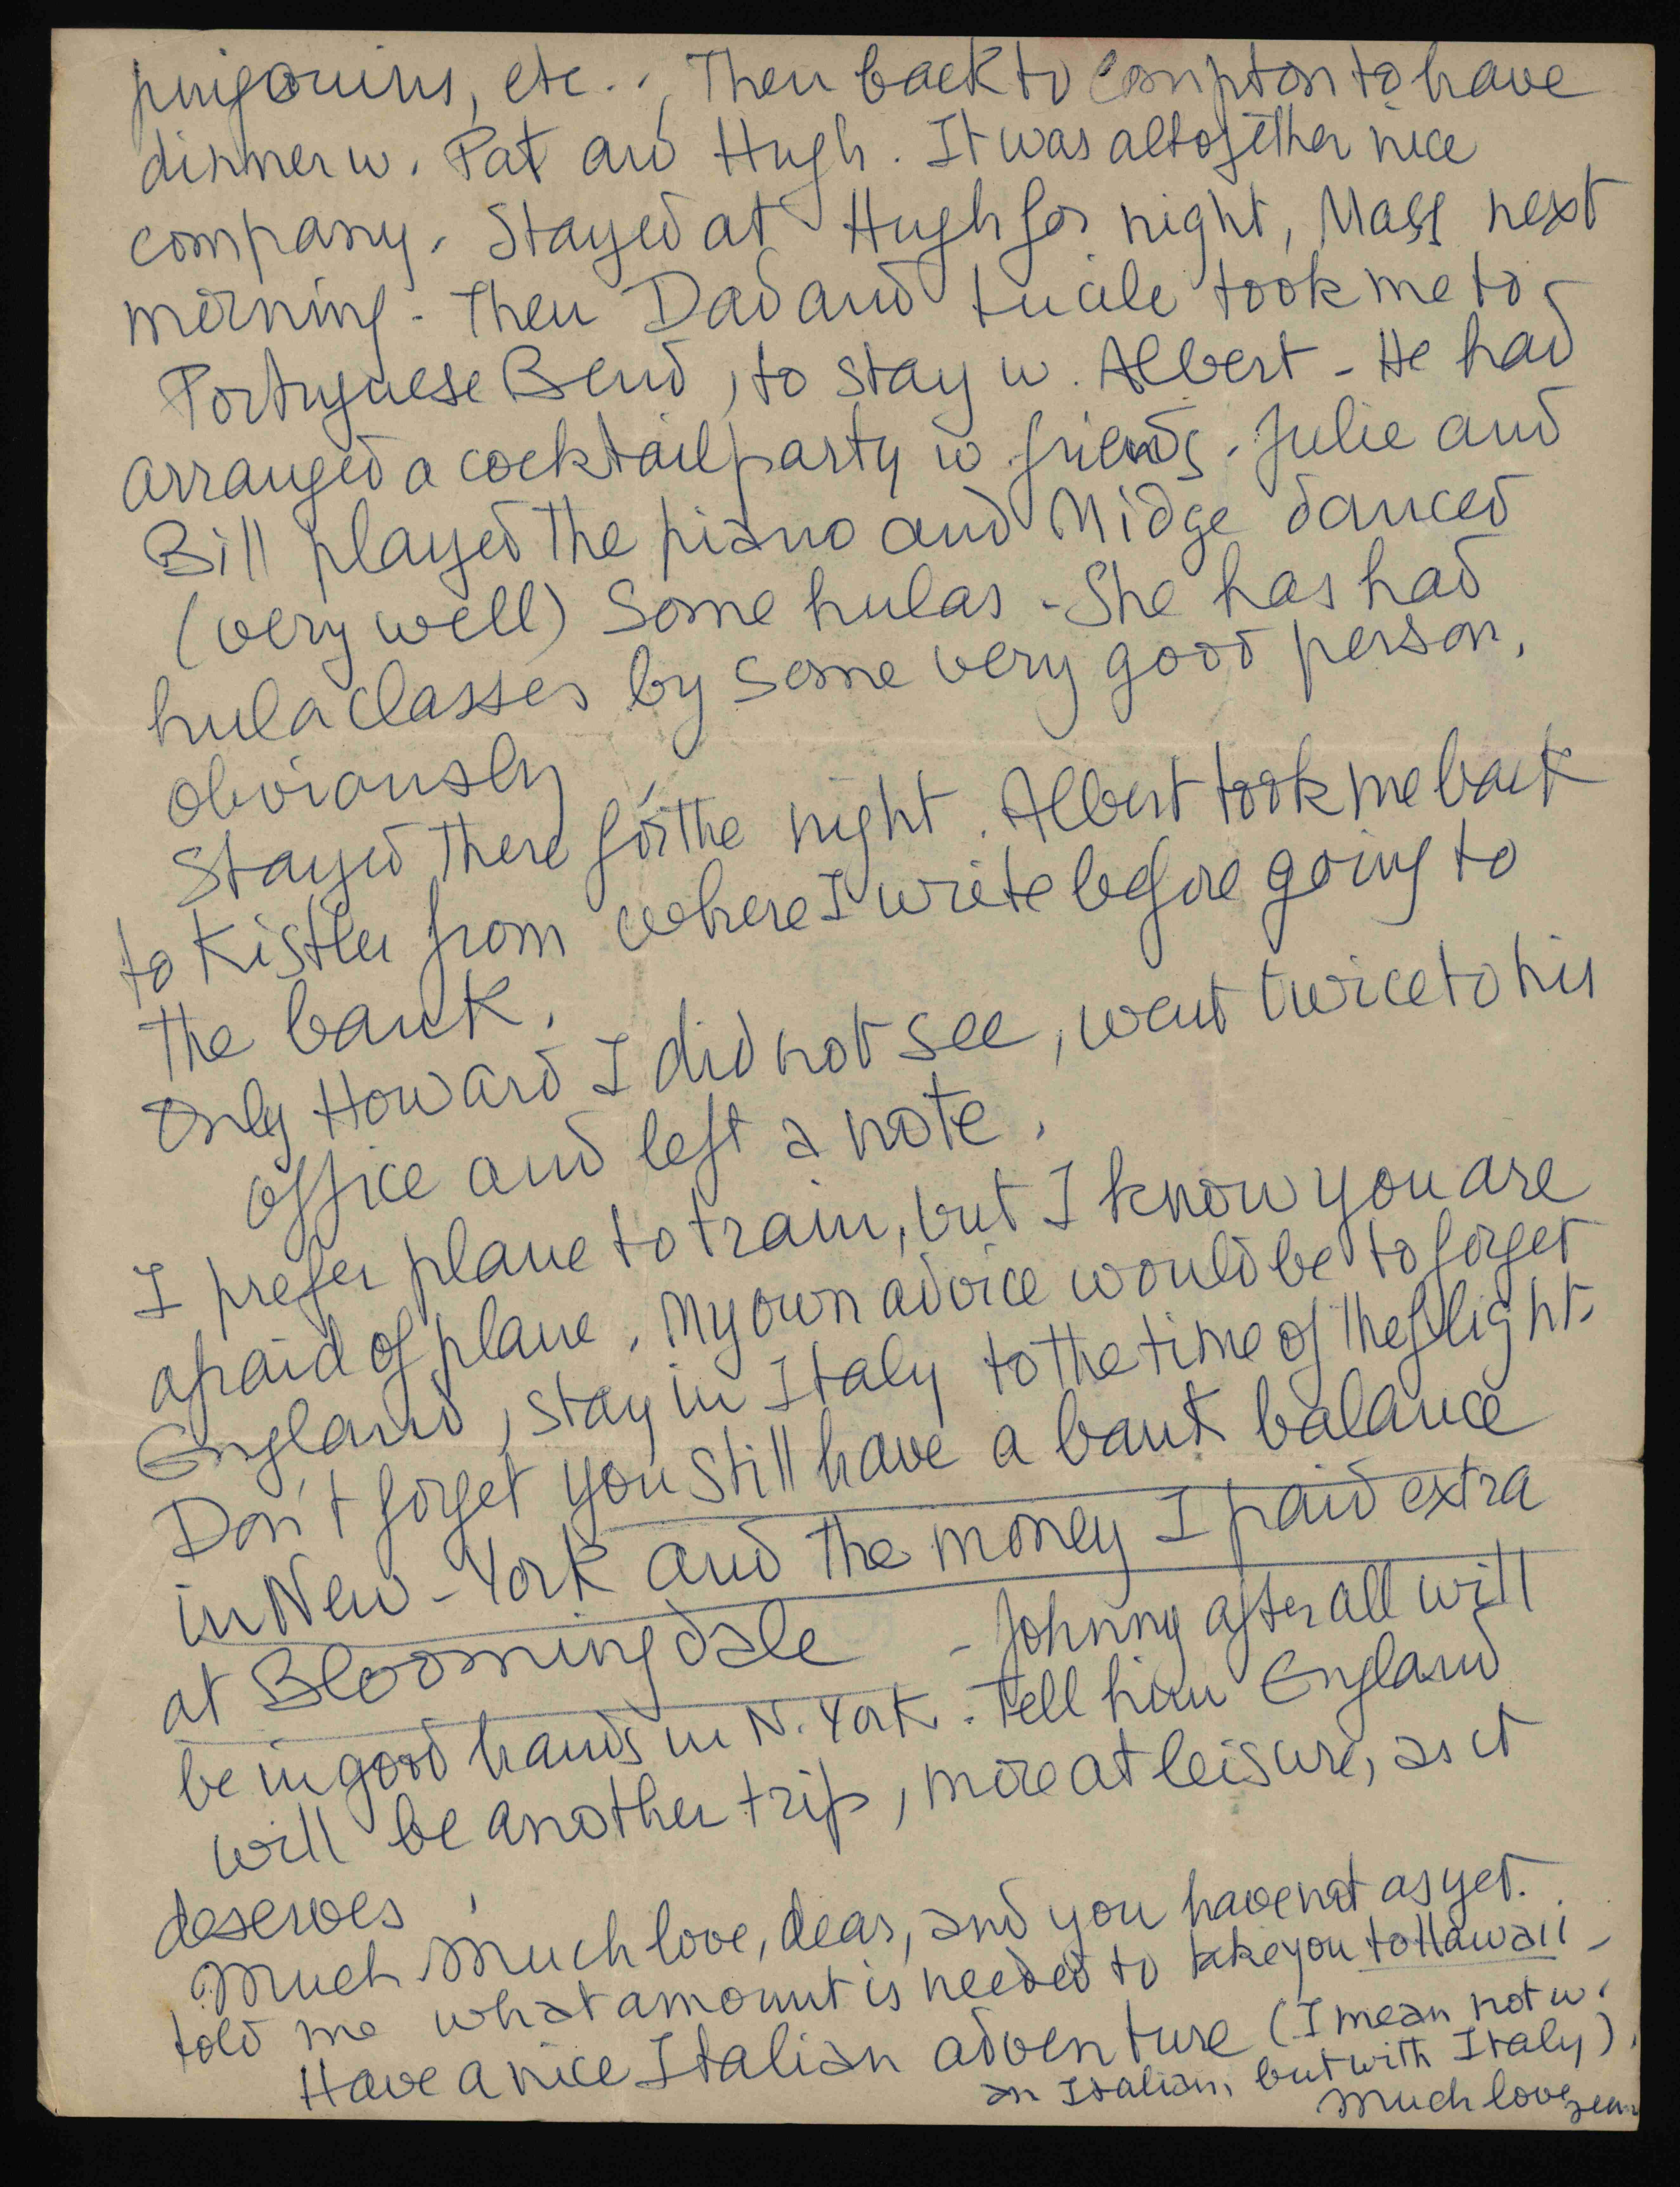 pingouins, etc.., Then back to Compton to have
dinner w. Pat and Hugh. It was altogether nice
company. Stayed at Hugh for night, Mass next
morning. Then Dad and Lucile took me to
Portuguese Bend, to stay w. Albert - He had
arranged a cocktail party w. friends. Julie and
Bill played the piano and Midge danced
(very well) some hulas - She has had
hula classes by some very good person,
obviously
Stayed there for the night. Albert took me back
to Kistler from where I write before going to
the bank.
Only Howard I did not see, went twice to his
office and left a note.
I prefer plane to train, but I know you are
afraid of plane. My own advice would be to forget
England, stay in Italy to the time of the flight.
Don't forget you still have a bank balance
in New-York and the money I paid extra
at Bloomingdale - Johnny after all will
be in good hands in N. York. Tell him England
will be another trip, more at leisure, as it
deserves.
Much Much love, dear, and you have not as yet.
told me what amount is needed to take you to Hawaii -
Have a nice Italian adventure (I mean not w.
an Italian, but with Italy).
Much love, Jean